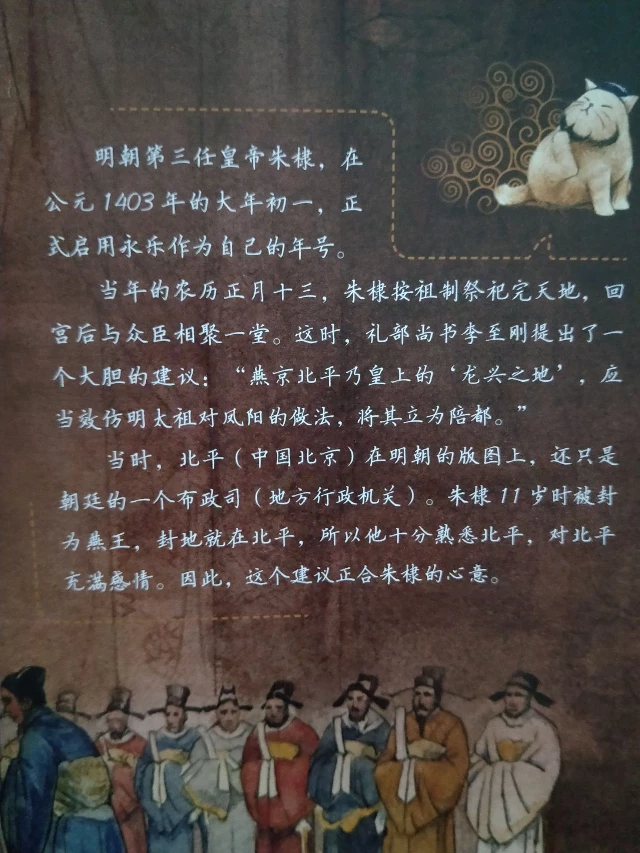 明朝第三任皇帝朱棣，在
公元1403年的大年初一，正
式启用永乐作为自己的年号。
当年的农历正月十三，朱棣按祖制祭祀完天地，回
宫后与众臣相聚一堂。这时，礼部尚书李至刚提出了一
个大胆的建议：“燕京北平乃皇上的‘龙兴之地’，应
当效仿明太祖对凤阳的做法，将其立为陪都。”
当时，北平（中国北京）在明朝的版图上，还只是
朝廷的一个布政司（地方行政机关）。朱棣11岁时被封
为燕王，封地就在北平，所以他十分熟悉北平，对北平
充满感情。因此，这个建议正合朱棣的心意。